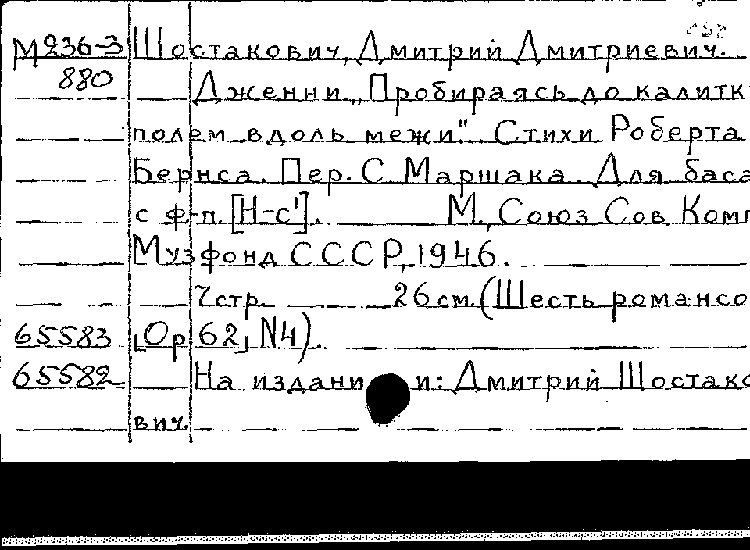 М236-3 Шостакович, Дмитрий Дмитриевич.
880 Дженни. „Пробираясь до калитк
полем вдоль межи". Стихи Роберта
Бернса. Пер. С. Маршака. Для баса
с ф-п. [H-c']. М., Союз Сов. Комп
Музфонд СССР, 1946.
7 стр. 26 см. (Шесть романсо
65583 [Ор 62] N4).
65582 На издани и: Дмитрий Шостако
вич.